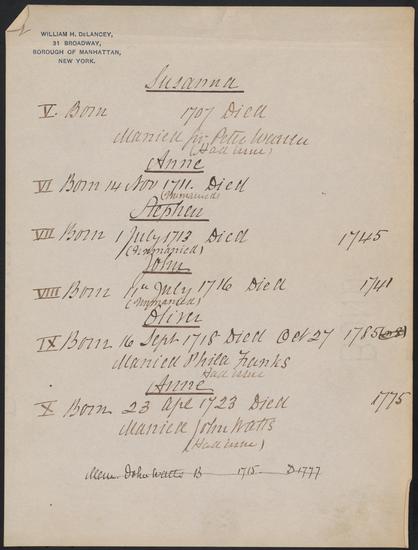 WILLIAM H. DELANCEY,
31 BROADWAY,
BOROUGH OF MANHATTAN,
NEW YORK.
Susanna
V. Born 1707 Died
Married Sir Peter Warren
(Had issue)
Anne
VI Born 14 Nov 1711. Died
(Unmarried)
Stephen
VII Born 1 July 1713 Died 1745
(Unmarried)
John
VIII Born July 1716 Died 1741
(Unmarried)
Oliver
IX Born 16 Sept 1718 Died Oct 27 1785
Married Phila Franks
Had issue
Anne
X Born 23 Apl 1723 Died 1775
Married John Watts
(Had issue)
Mem. John Watts B 1715 D 1777